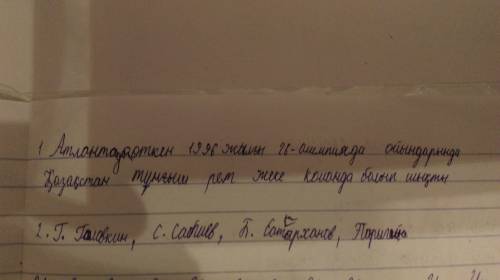 1 Атлантада өткен 1996 жылғы 26-олимпиада ойындарында
Қазақстан тұңғыш рет жеке команда болып шықты
2. Г. Головкин, С. Сапиев, Б. Сатарханов,